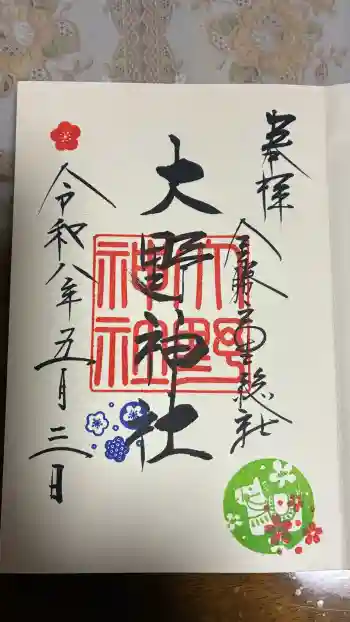 奉拝
大野神社
令和八年五月三日
大野神社